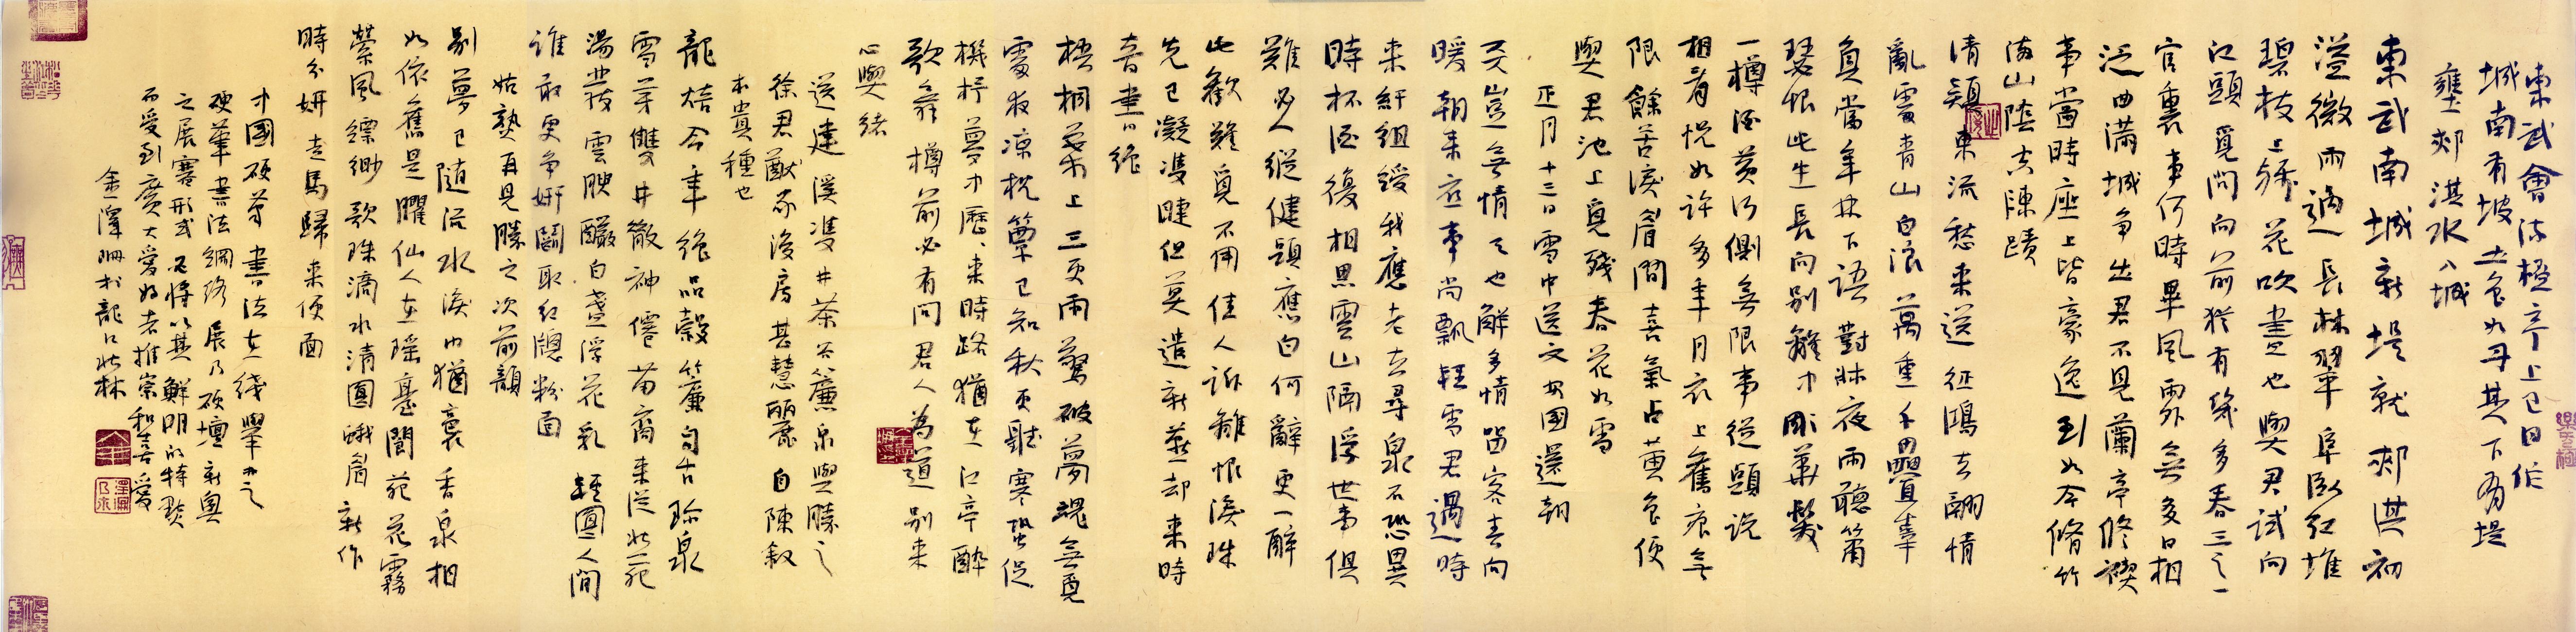 東武會流杯亭上巳日作
城南有坡土色如丹其下有堤
壅郟淇水入城
東武南城新堤就郟淇初
溢微雨過長林翠阜臥紅堆
碧枝上殘花吹盡也與君試向
江頭覓問向前猶有幾多春三之一
官裏事何時畢風雨外無多日相
泛曲滿城爭出君不見蘭亭修禊
事當時座上皆豪逸到如今脩竹
滿山陰空陳蹟
清潁東流愁來送征鴻去翮情
亂處青山白浪萬重千疊辜
負當年林下語對牀夜雨聽蕭
瑟恨此生長向別離中彫華髮
一樽酒黃河側無限事從頭說
相看恍如許多年月衣上舊痕無
限餘苦淚眉間喜氣占黃色便
與君池上覓殘春花如雪
正月十三日雪中送文安國還朝
天豈無情天也解多情留客春向
暖朝來底事尚飄輕雪君過時
來紆組綬我應老去尋泉石恐異
時杯酒復相思雲山隔浮世事俱
難必人縱健頭應白何辭更一醉
此歡難覓不用佳人訴離恨淚珠
先已凝雙睫但莫遣新燕却來時
音書絕
梧桐葉上三更雨驚破夢魂無覓
處夜涼枕簟已知秋更聽寒蛩促
機杼夢中歷歷來時路猶在江亭醉
歌舞樽前必有問君人為道別來
心與緒
送建溪雙井茶谷簾泉與勝之
徐君猷家後房甚慧麗自陳敘
本貴種也
龍焙今年絕品穀簾自古珍泉
雪芽雙井散神僊苗裔來從北苑
湯發雲腴釅白盞浮花乳輕圓人間
誰敢更爭妍鬭取紅窗粉面
姑熟再見勝之次前韻
別夢已隨流水淚巾猶裛香泉相
如依舊是臞仙人在瑤臺閬苑花霧
縈風縹緲歌珠滴水清圓蛾眉新作
時分妍走馬歸來便面
中國硬筆書法在綫舉办之
硬筆書法網絡展乃硬壇新興
之展賽形式必將以其鮮明的特點
而受到廣大愛好者推崇和喜愛
金澤珊书龍江北林